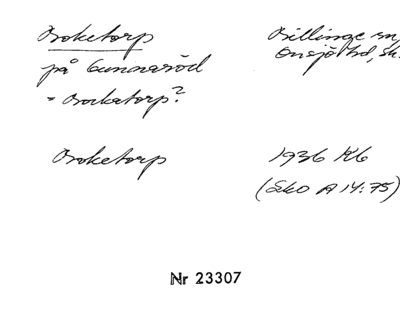 Broketorp
Billinge sn,
på Gunnaröd
Onsjö hd, sk.
= Brokatorp?
Broketorp
1936 Kb
(Eko A 14:75)
Nr 23307